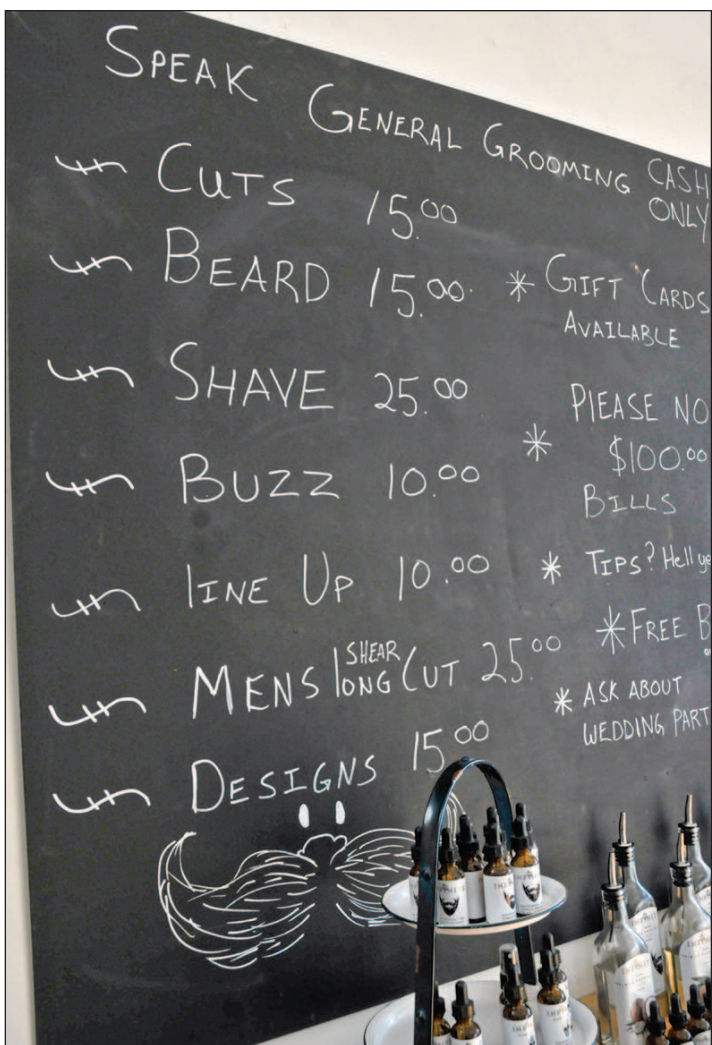 SPEAK GENERAL GROOMING CASH
ONLY
CUTS 15.00
BEARD 15.00
SHAVE 25.00
BUZZ 10.00
LINE UP 10.00
MENS LONG SHEAR CUT 25.00
DESIGNS 15.00
* GIFT CARDS
AVAILABLE
* PLEASE NO
$100.00
BILLS
* TIPS? Hell ye
* FREE B
* ASK ABOUT
WEDDING PART